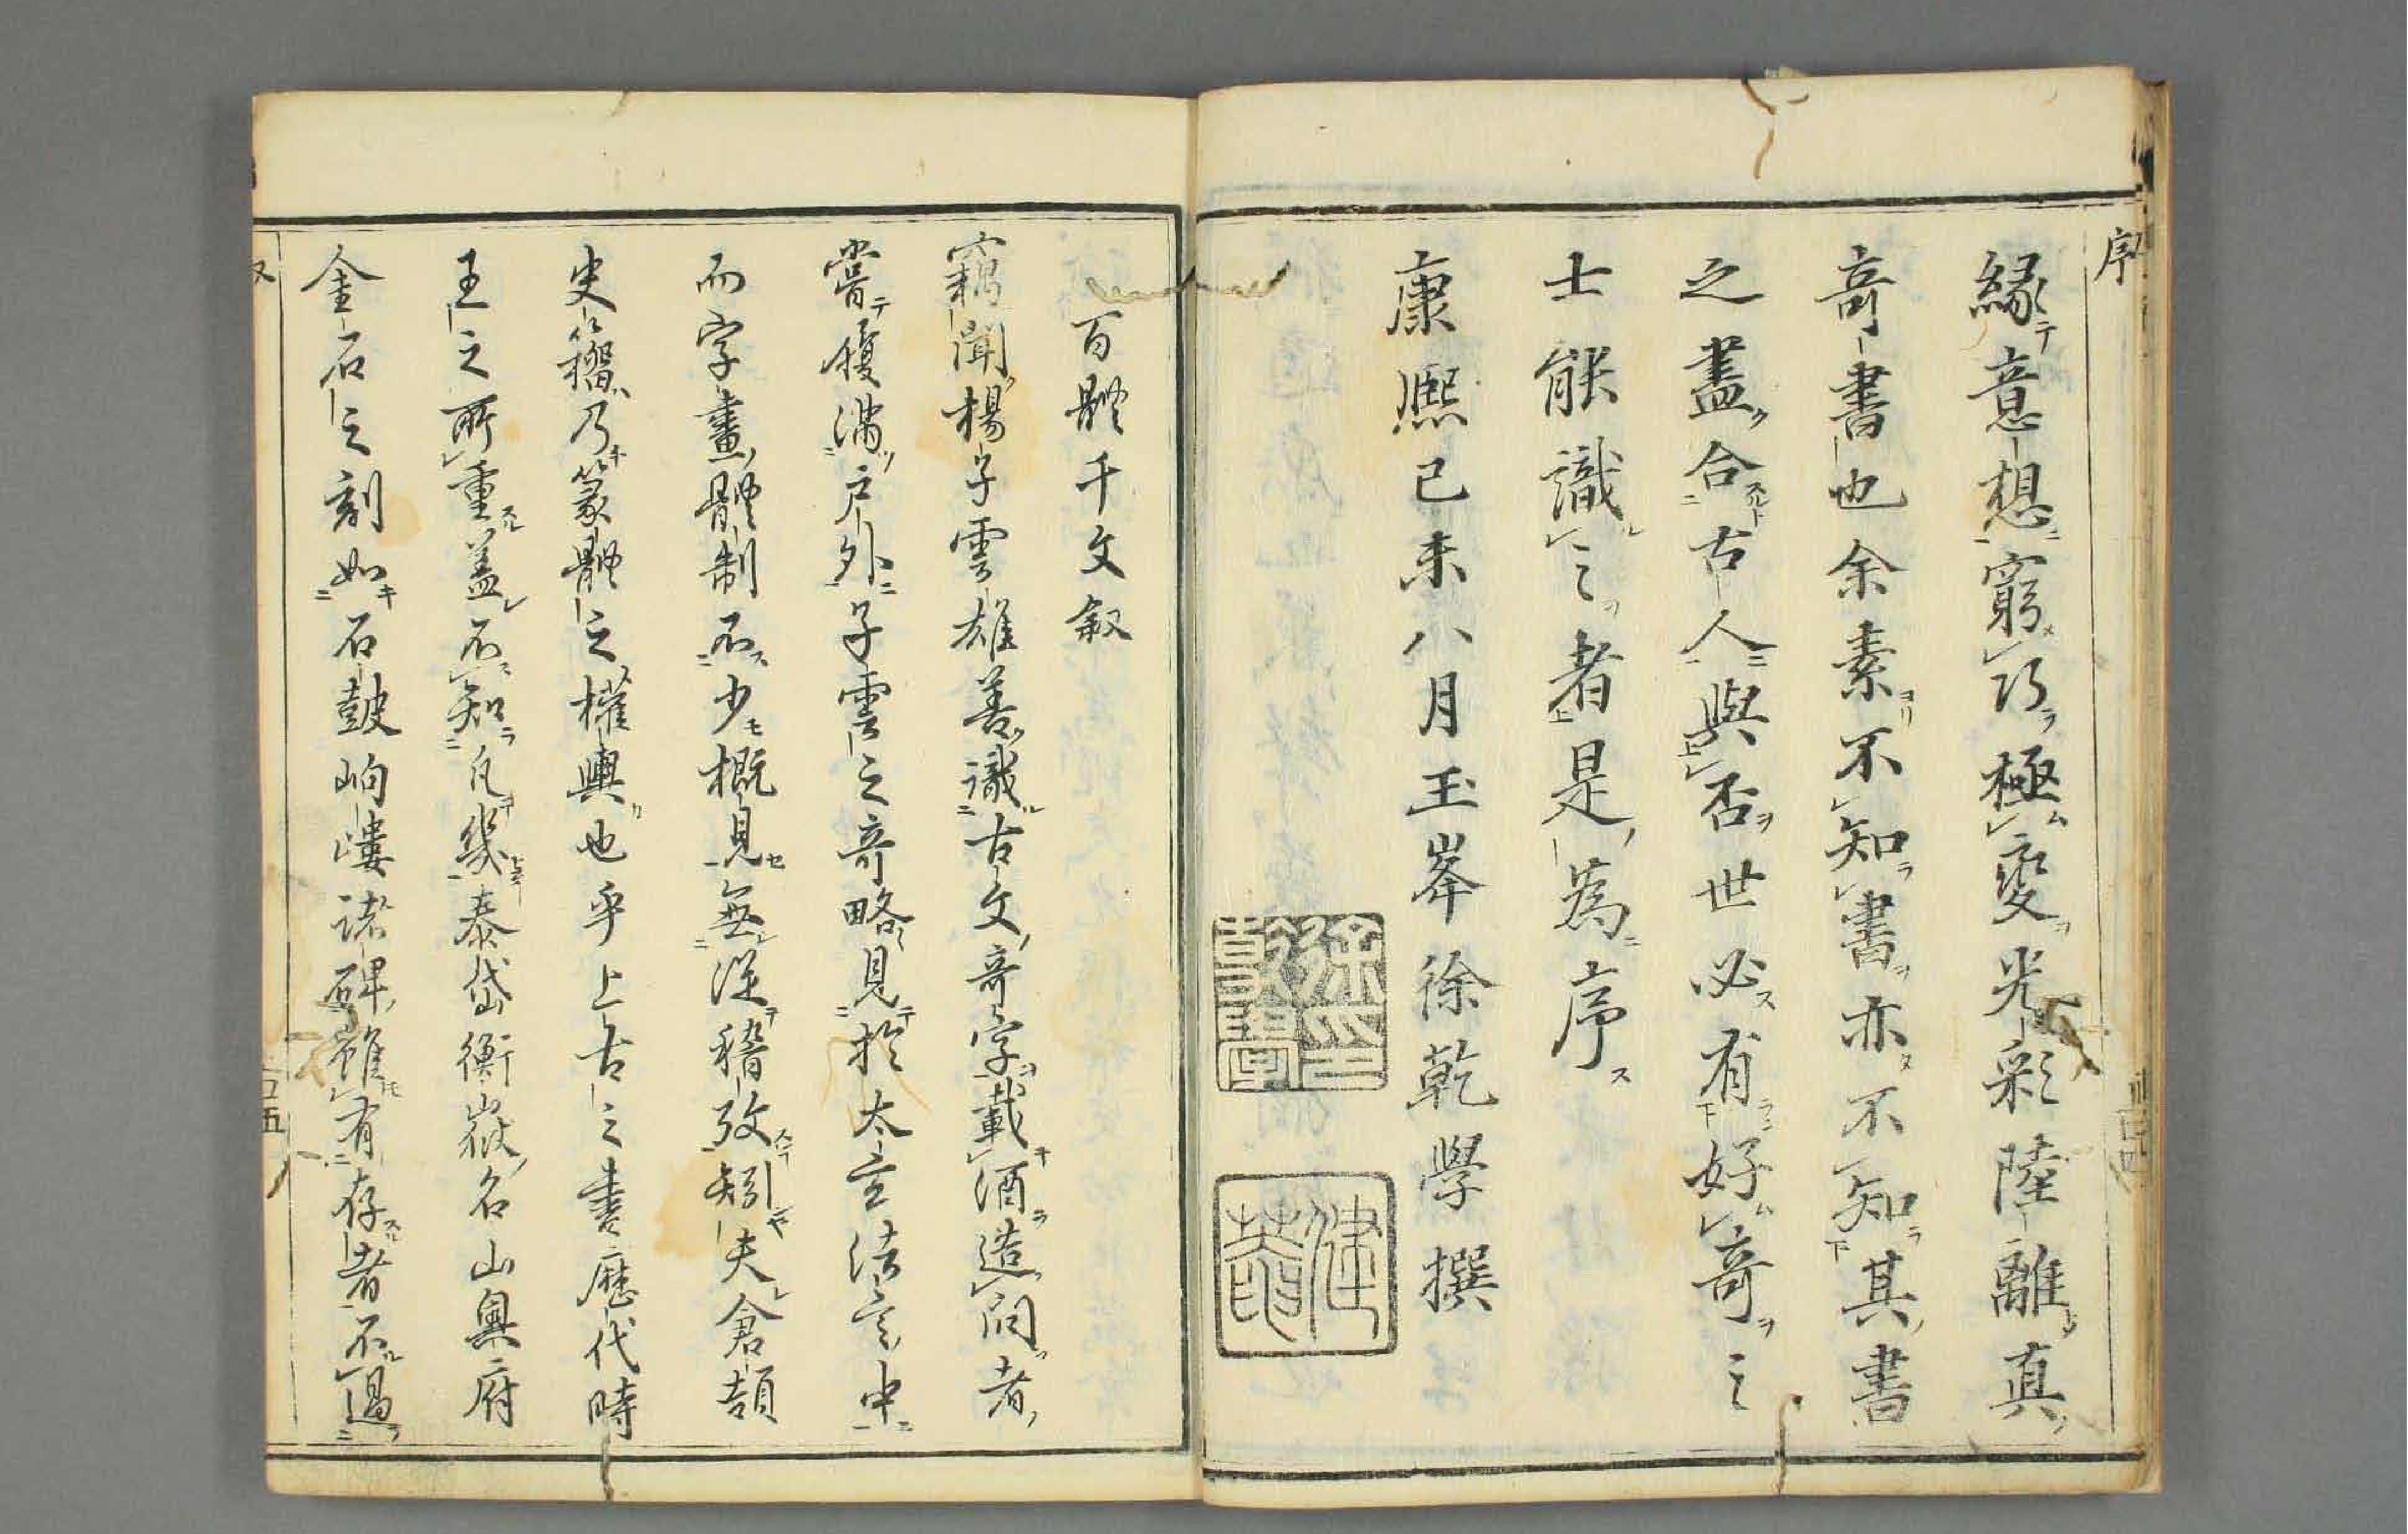 序
緣意想窮巧極變光彩陸離真
竒書也余素不知書亦不知其書
之盡合古人與否世必有好竒之
士能識之者是為序
康熙己未八月玉峯徐乾學撰
徐乾學印
健菴
百體千文叙
竊聞楊子雲雄善識古文竒字載酒造問者
嘗履滿户外子雲之竒略見於太玄法言中
而字畫體制不少概見無從稽攷矧夫倉頡
史籀乃篆體之權輿也乎上古之書歷代時
王之所重蓋不知凡幾泰岱衡嶽名山奧府
金石之刻如石鼓岣嶁諸碑雖有存者不過